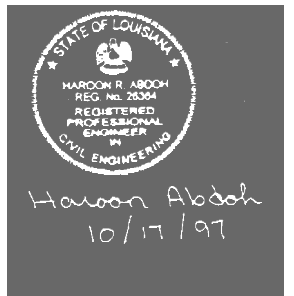 STATE OF LOUISIANA
HAROON R. ABDOH
REG. No. 26364
REGISTERED
PROFESSIONAL
ENGINEER
IN
CIVIL ENGINEERING
Haroon Abdoh
10/17/97